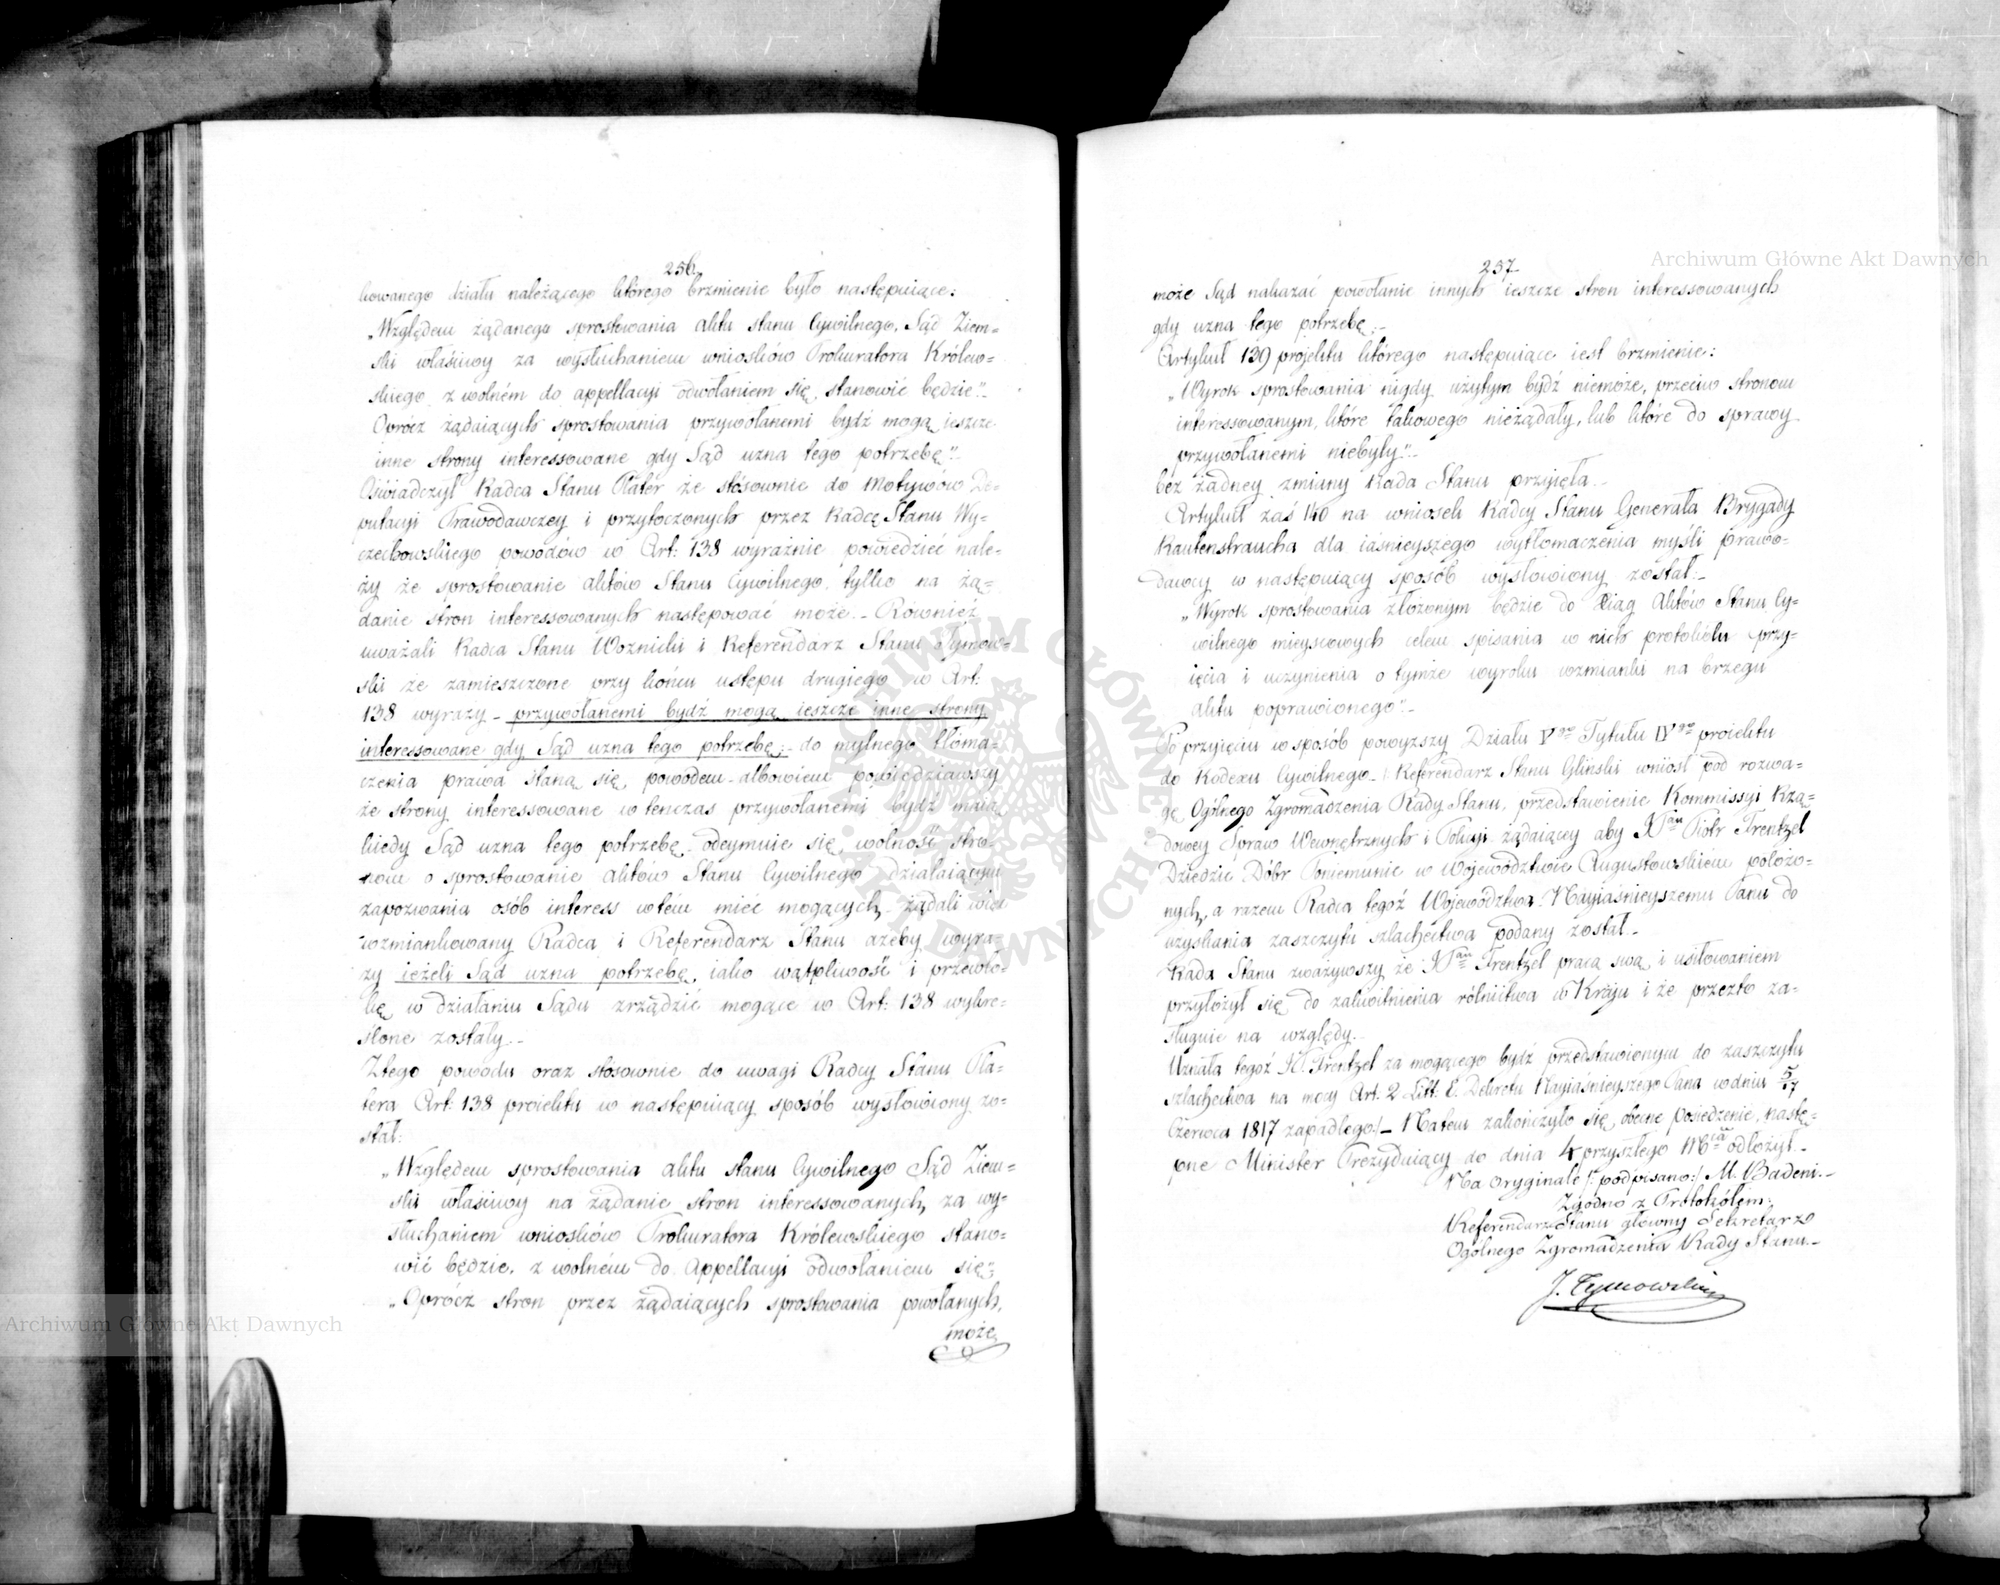 256
kowanego działu należącego którego brzmienie było następuiące:
„Względem żądanego sprostowania aktu stanu Cywilnego, Sąd Ziem=
ski właściwy za wysłuchaniem wniosków Prokuratora Królew=
skiego z wolném do appellacyi odwołaniem się, stanowić będzie"_
Oprócz żądaiących sprostowania przywołanemi bydź mogą ieszcze
inne strony interessowane gdy Sąd uzna tego potrzebę"_
Oświadczył Radca Stanu Plater że stósownie do Motywów De=
putacyi Prawodawczey i przytoczonych przez Radcę Stanu Wy=
czechowskiego powodów w Art: 138 wyraźnie powiedzieć nale=
ży że sprostowanie aktów Stanu Cywilnego, tylko na żą=
danie stron interessowanych następować może_ Również
uważali Radca Stanu Woznicki i Referendarz Stanu Tymow=
ski że zamieszczone przy końcu ustępu drugiego w Art:
138 wyrazy_ przywołanemi bydź mogą ieszcze inne strony
interessowane gdy Sąd uzna tego potrzebę;_ do mylnego tłóma=
czenia prawa staną się powodem_ albowiem powiedziawszy
że strony interessowane wtenczas przywołanemi bydź maią
kiedy Sąd uzna tego potrzebę_ odeymuie się wolność stro=
nom o sprostowanie aktów Stanu Cywilnego działaiącym
zapozwania osób interess wtém mieć mogących_ żądali więc
wzmiankowany Radca i Referendarz Stanu ażeby wyra=
zy ieżeli Sąd uzna potrzebę, iako wątpliwość i przewło=
kę w działaniu Sądu zrządzić mogące w Art: 138 wykre=
ślone zostały_
Ztego powodu oraz stosownie do uwagi Radcy Stanu Pla=
tera Art: 138 proiektu w następuiący sposób wysłowiony zo=
stał:
„Względem sprostowania aktu stanu Cywilnego Sąd Ziem=
ski właściwy na żądanie stron interessowanych, za wy=
słuchaniem wniosków Prokuratora Królewskiego stano=
wić będzie, z wolném do Appellacyi odwołaniem się"_
„Oprócz stron przez żądaiących sprostowania powołanych,
może
237
może Sąd nakazać powołanie innych ieszcze stron interessowanych
gdy uzna tego potrzebę;_
Artykuł 139 projektu którego następuiące iest brzmienie:
„Wyrok sprostowania nigdy użytym bydź niemoże, przeciw stronom
interessowanym, które takowego nieżądały, lub które do sprawy
przywołanemi niebyły"_
bez żadney zmiany Rada Stanu przyięła_
Artykuł zaś 140 na wniosek Radcy Stanu Generała Brygady
Rautenstraucha dla iaśnieyszego wytłomaczenia myśli prawo=
dawcy w następuiący sposób wysłowiony został:_
„Wyrok sprostowania złożonym będzie do Xiąg Aktów Stanu Cy=
wilnego mieyscowych celem spisania w nich protokółu przy=
ięcia i uczynienia o tymże wyroku wzmianki na brzegu
aktu poprawionego"_
Po przyięciu wsposób powyższy Działu Vgo Tytułu IVgo proiektu
do Kodexu Cywilnego_ Referendarz Stanu Gliński wniósł pod rozwa=
gę Ogólnego Zgromadzenia Rady Stanu, przedstawienie Kommissyi Rzą=
dowey Spraw Wewnętrznych i Policyi żądaiącey aby Piotr Frentzel
Dziedzic Dóbr Poniemunie w Województwie Augustowskiém położo=
nych, a razem Radca tegoż Województwa Nayiaśnieyszemu Panu do
uzyskania zaszczytu szlachectwa podany został_
Rada Stanu zważywszy że Frentzel pracą swą i usiłowaniem
przyłożył się do zakwitnienia rólnictwa w Kraju i że przezto za=
sługuie na względy_
Uznała tegoż Frentzel za mogącego bydź przedstawionym do zaszczytu
szlachectwa na mocy Art. 2 Litt. E. Dekretu Nayiaśnieyszego Pana wdniu 5/17
Czerwca 1817 zapadłego/_ Natem zakończyło się obecne posiedzenie, nastę=
pne Minister Prezyduiący do dnia 4 przyszłego Mca odłożył_
Na oryginale /: podpisano:/ M. Badeni_
Zgodno z Protokółem:
Referendarz Stanu główny Sekretarz
Ogólnego Zgromadzenia Rady Stanu_
J. Tymowski
Archiwum Główne Akt Dawnych
Archiwum Główne Akt Dawnych
ARCHIWUM GŁÓWNE AKT DAWNYCH